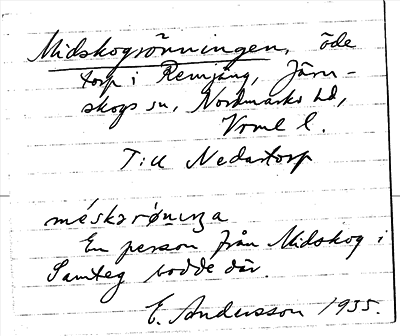 Midskogrönningen, öde
torp i Remjäng, Järn-
skogs sn, Nordmarks hd,
Vrml l.
Till Nedantorp
méskꝛrø̄nıŋa
En person från Midskog i
Samteg bodde där.
E. Andersson 1935.